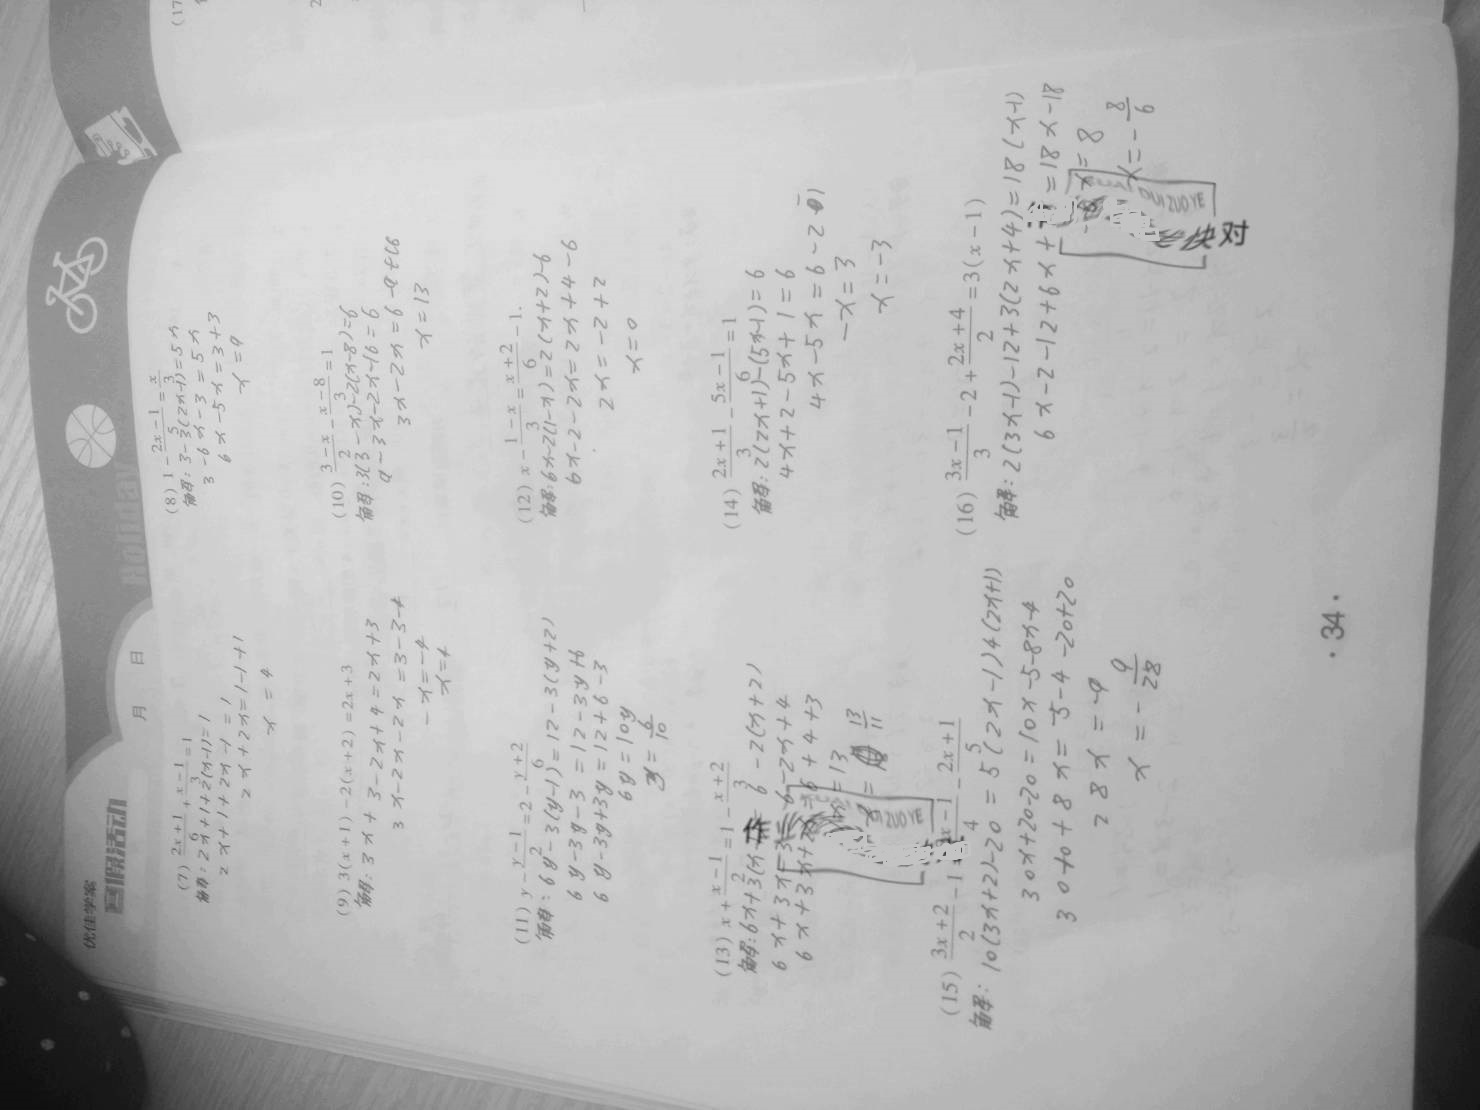 优佳学案
寒假活动
月 日
Holiday
(7) \frac{2x+1}{6}+\frac{x-1}{3}=1
解: 2x+1+2(x-1)=1
2x+1+2x-1=1
2x+2x=1-1+1
x=4
(8) 1-\frac{2x-1}{5}=\frac{x}{3}
解: 3-3(2x-1)=5x
3-6x-3=5x
6x-5x=3+3
x=9
(9) 3(x+1)-2(x+2)=2x+3
解: 3x+3-2x+4=2x+3
3x-2x-2x=3-3-4
-x=-4
x=4
(10) \frac{3-x}{2}-\frac{x-8}{3}=1
解: 3(3-x)-2(x-8)=6
9-3x-2x-16=6
3x-2x=6-9+16
x=13
(11) y-\frac{y-1}{2}=2-\frac{y+2}{6}
解: 6y-3(y-1)=12-3(y+2)
6y-3y-3=12-3y+6
6y-3y+3y=12+6-3
6y=10y
y=\frac{6}{10}
(12) x-\frac{1-x}{3}=\frac{x+2}{6}-1.
解: 6x-2(1-x)=2(x+2)-6
6x-2-2x=2x+4-6
2x=-2+2
x=0
(13) x+\frac{x-1}{2}=1-\frac{x+2}{3}
解: 6x+3(x 6-2(x+2)
6x+3x-3=6-2x+4
6x+3x+2x=6+4+3
x=13
x=\frac{13}{11}
(14) \frac{2x+1}{3}-\frac{5x-1}{6}=1
解: 2(2x+1)-(5x-1)=6
4x+2-5x+1=6
4x-5x=6-2-1
-x=3
x=-3
(15) \frac{3x+2}{2}-1=\frac{2x-1}{4}-\frac{2x+1}{5}
解: 10(3x+2)-20=5(2x-1)4(2x+1)
30x+20-20=10x-5-8x-4
30+0+8x=5-4-20+20
28x=-9
x=-\frac{9}{28}
(16) \frac{3x-1}{3}-2+\frac{2x+4}{2}=3(x-1)
解: 2(3x-1)-12+3(2x+4)=18(x-1)
6x-2-12+6x+ =18x-18
x=8
x=-\frac{8}{6}
作
DUI ZUO YE
快对
DUI ZUO YE
·34·